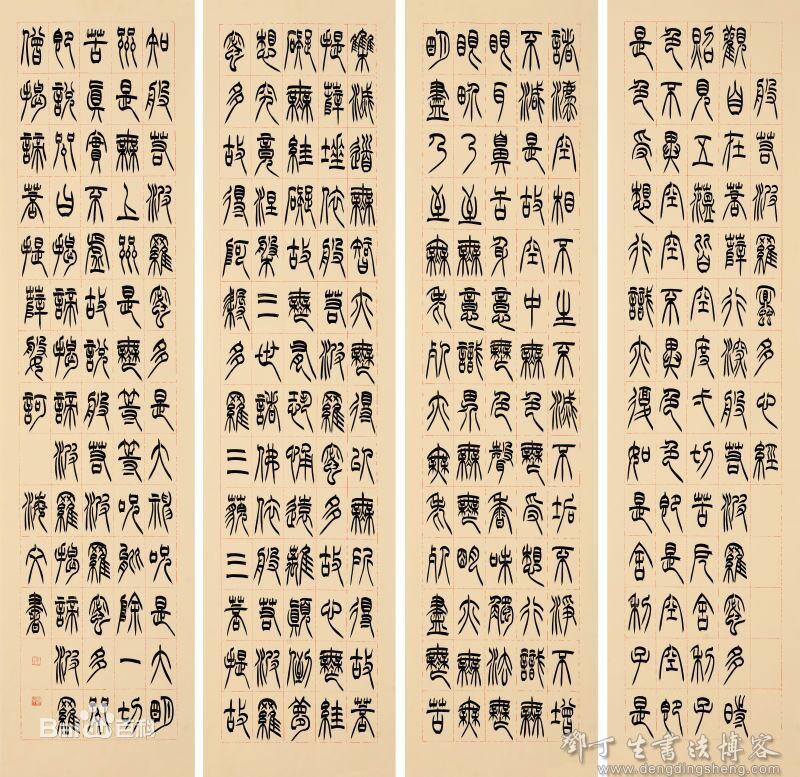 般若波羅蜜多心經
觀自在菩薩行深般若波羅蜜多時
照見五蘊皆空度一切苦厄舍利子
色不異空空不異色色即是空空即
是色受想行識亦復如是舍利子是
諸法空相不生不滅不垢不淨不增
不減是故空中無色無受想行識無
眼耳鼻舌身意無色聲香味觸法無
眼界乃至無意識界無無明亦無無
明盡乃至無老死亦無老死盡無苦
集滅道無智亦無得以無所得故菩
提薩埵依般若波羅蜜多故心無罣
礙無罣礙故無有恐怖遠離顛倒夢
想究竟涅槃三世諸佛依般若波羅
蜜多故得阿耨多羅三藐三菩提故
知般若波羅蜜多是大神咒是大明
咒是無上咒是無等等咒能除一切
苦真實不虛故說般若波羅蜜多咒
即說咒曰揭諦揭諦波羅揭諦波羅
僧揭諦菩提薩婆訶 海文書
Bai百科
鄧丁生書法博客
www.dengdingsheng.com